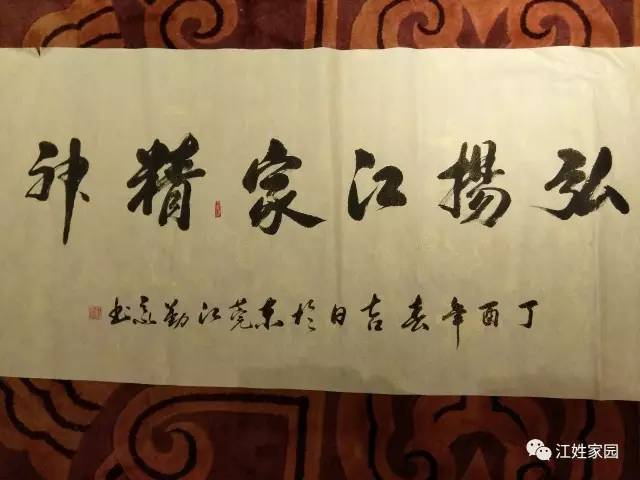 弘揚江家精神
丁酉年春吉日於東莞江勤意书
江姓家园